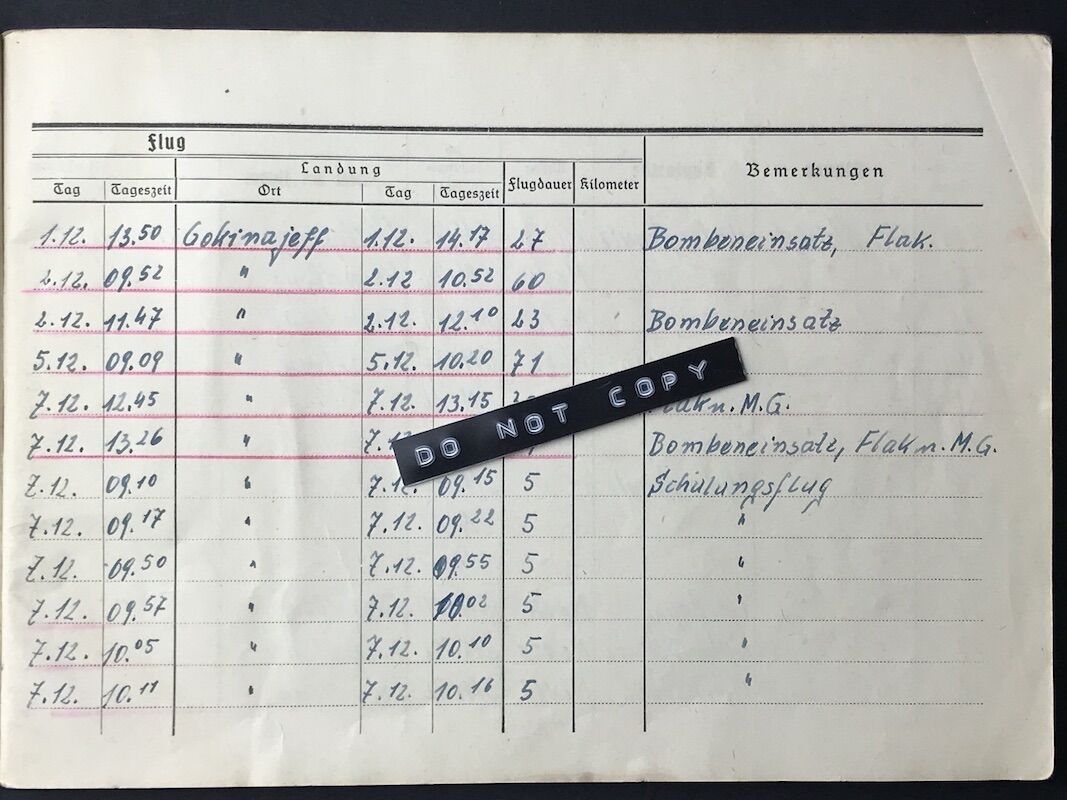 Flug
Landung
Bemerkungen
Tag Tageszeit Ort Tag Tageszeit Flugdauer Kilometer
1.12. 13.50 Gokinajeff 1.12. 14.17 27 Bombeneinsatz, Flak.
2.12. 09.52 " 2.12 10.52 60
2.12. 11.47 " 2.12. 12.10 23 Bombeneinsatz
5.12. 09.09 " 5.12. 10.20 71
7.12. 12.45 7.12. 13.15 u. M.G.
7.12. 13.26 " Bombeneinsatz, Flak u. M.G.
DO NOT COPY
7.12. 09.10 " 7.12. 09.15 5 Schulungsflug
7.12. 09.17 " 7.12. 09.22 5 "
7.12. 09.50 " 7.12. 09.55 5 "
7.12. 09.57 " 7.12. 10.02 5 "
7.12. 10.05 " 7.12. 10.10 5 "
7.12. 10.11 " 7.12. 10.16 5 "